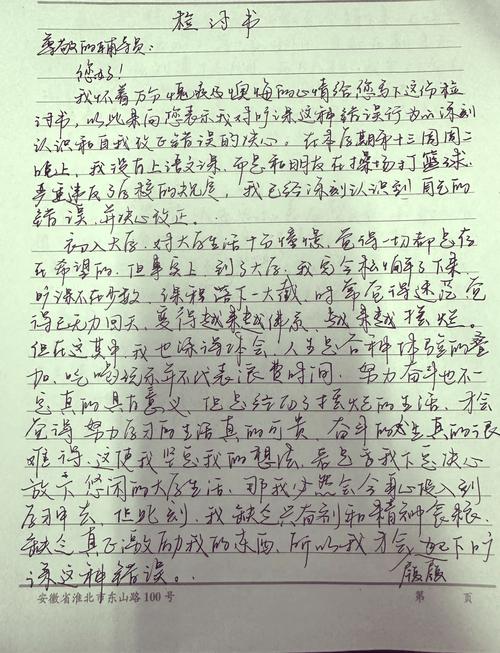 检讨书
尊敬的辅导员：
您好！
我怀着万分愧疚及懊悔的心情给您写下这份检
讨书，以此来向您表示我对旷课这种错误行为的深刻
认识和自我改正错误的决心。在本学期第十三周周二
晚上，我没有上语文课，而是和朋友在操场打篮球，
严重违反了学校的规定，我已经深刻认识到自己的
错误，并决心改正。
初入大学，对大学生活十分憧憬，觉得一切都是存
在希望的，但事实上，到了大学，我完全松懈了下来，
旷课不在少数，课程落下一大截，时常觉得迷茫，觉
得已无力回天，变得越来越佛系，越来越摆烂。
但在这其中，我也深得体会，人生是各种体验的叠
加，吃喝玩乐并不代表浪费时间，努力奋斗也不一
定真的具有意义，但是经历了摆烂的生活，才会
觉得努力学习的生活真的可贵，奋斗的人生真的很
难得，这使我坚定我的想法，若是当我下定决心
放弃悠闲的大学生活，那我必然会全身心投入到
学习中去，但此刻，我缺乏兴奋剂和精神食粮，
缺乏真正激励我的东西，所以我才会犯下旷
课这种错误。
屡屡
安徽省淮北市东山路100号
第 页